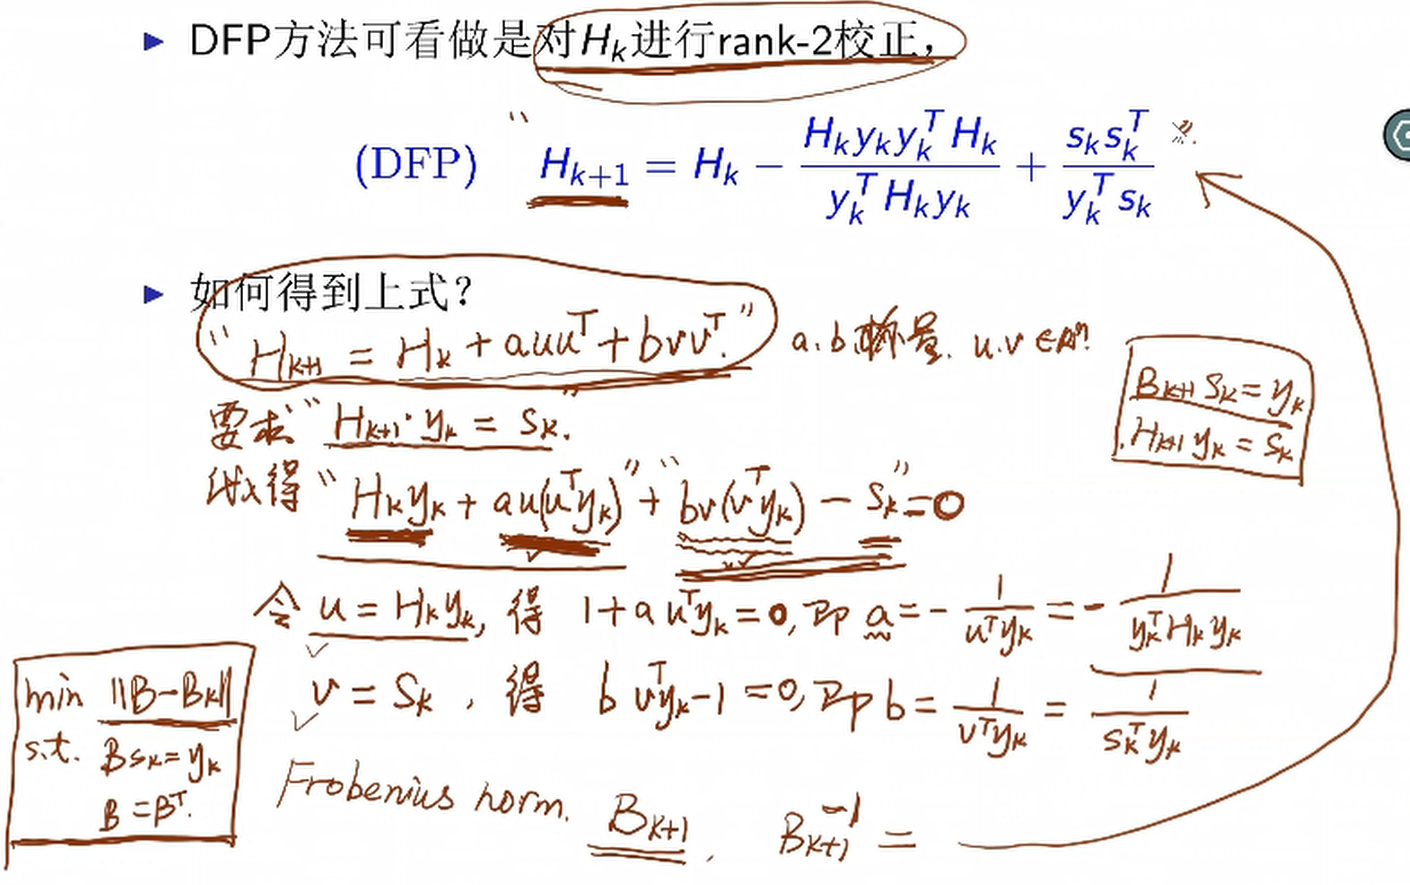 ▶ DFP方法可看做是对H_k进行rank-2校正，
(DFP) " H_{k+1} = H_k − \frac{H_k y_k y_k^T H_k}{y_k^T H_k y_k} + \frac{s_k s_k^T}{y_k^T s_k} "
▶ 如何得到上式？
" H_{k+1} = H_k + auu^T + bvv^T. " a.b 标量. u.v ∈ R^n.
要求 " H_{k+1}·y_k = s_k. "
B_{k+1} s_k = y_k
H_{k+1} y_k = s_k
得 " H_k y_k + au(u^T y_k) " + " bv(v^T y_k) − s_k " = 0
令 u = H_k y_k, 得 1 + a u^T y_k = 0, 即 a = − \frac{1}{u^T y_k} = − \frac{1}{y_k^T H_k y_k}
v = s_k, 得 b v^T y_k − 1 = 0, 即 b = \frac{1}{v^T y_k} = \frac{1}{s_k^T y_k}
min ||B−B_k||
s.t. Bs_k = y_k
B = B^T.
Frobenius norm. B_{k+1}, B_{k+1}^{-1} =